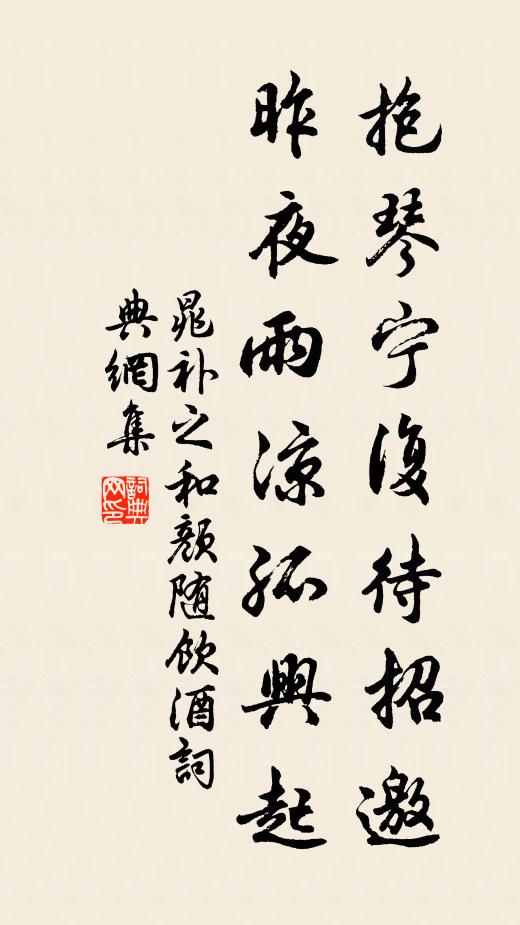 抱琴宁復待招邀
昨夜雨凉孤興起
晁补之和顏随飲酒詞
典網集
詞典网印